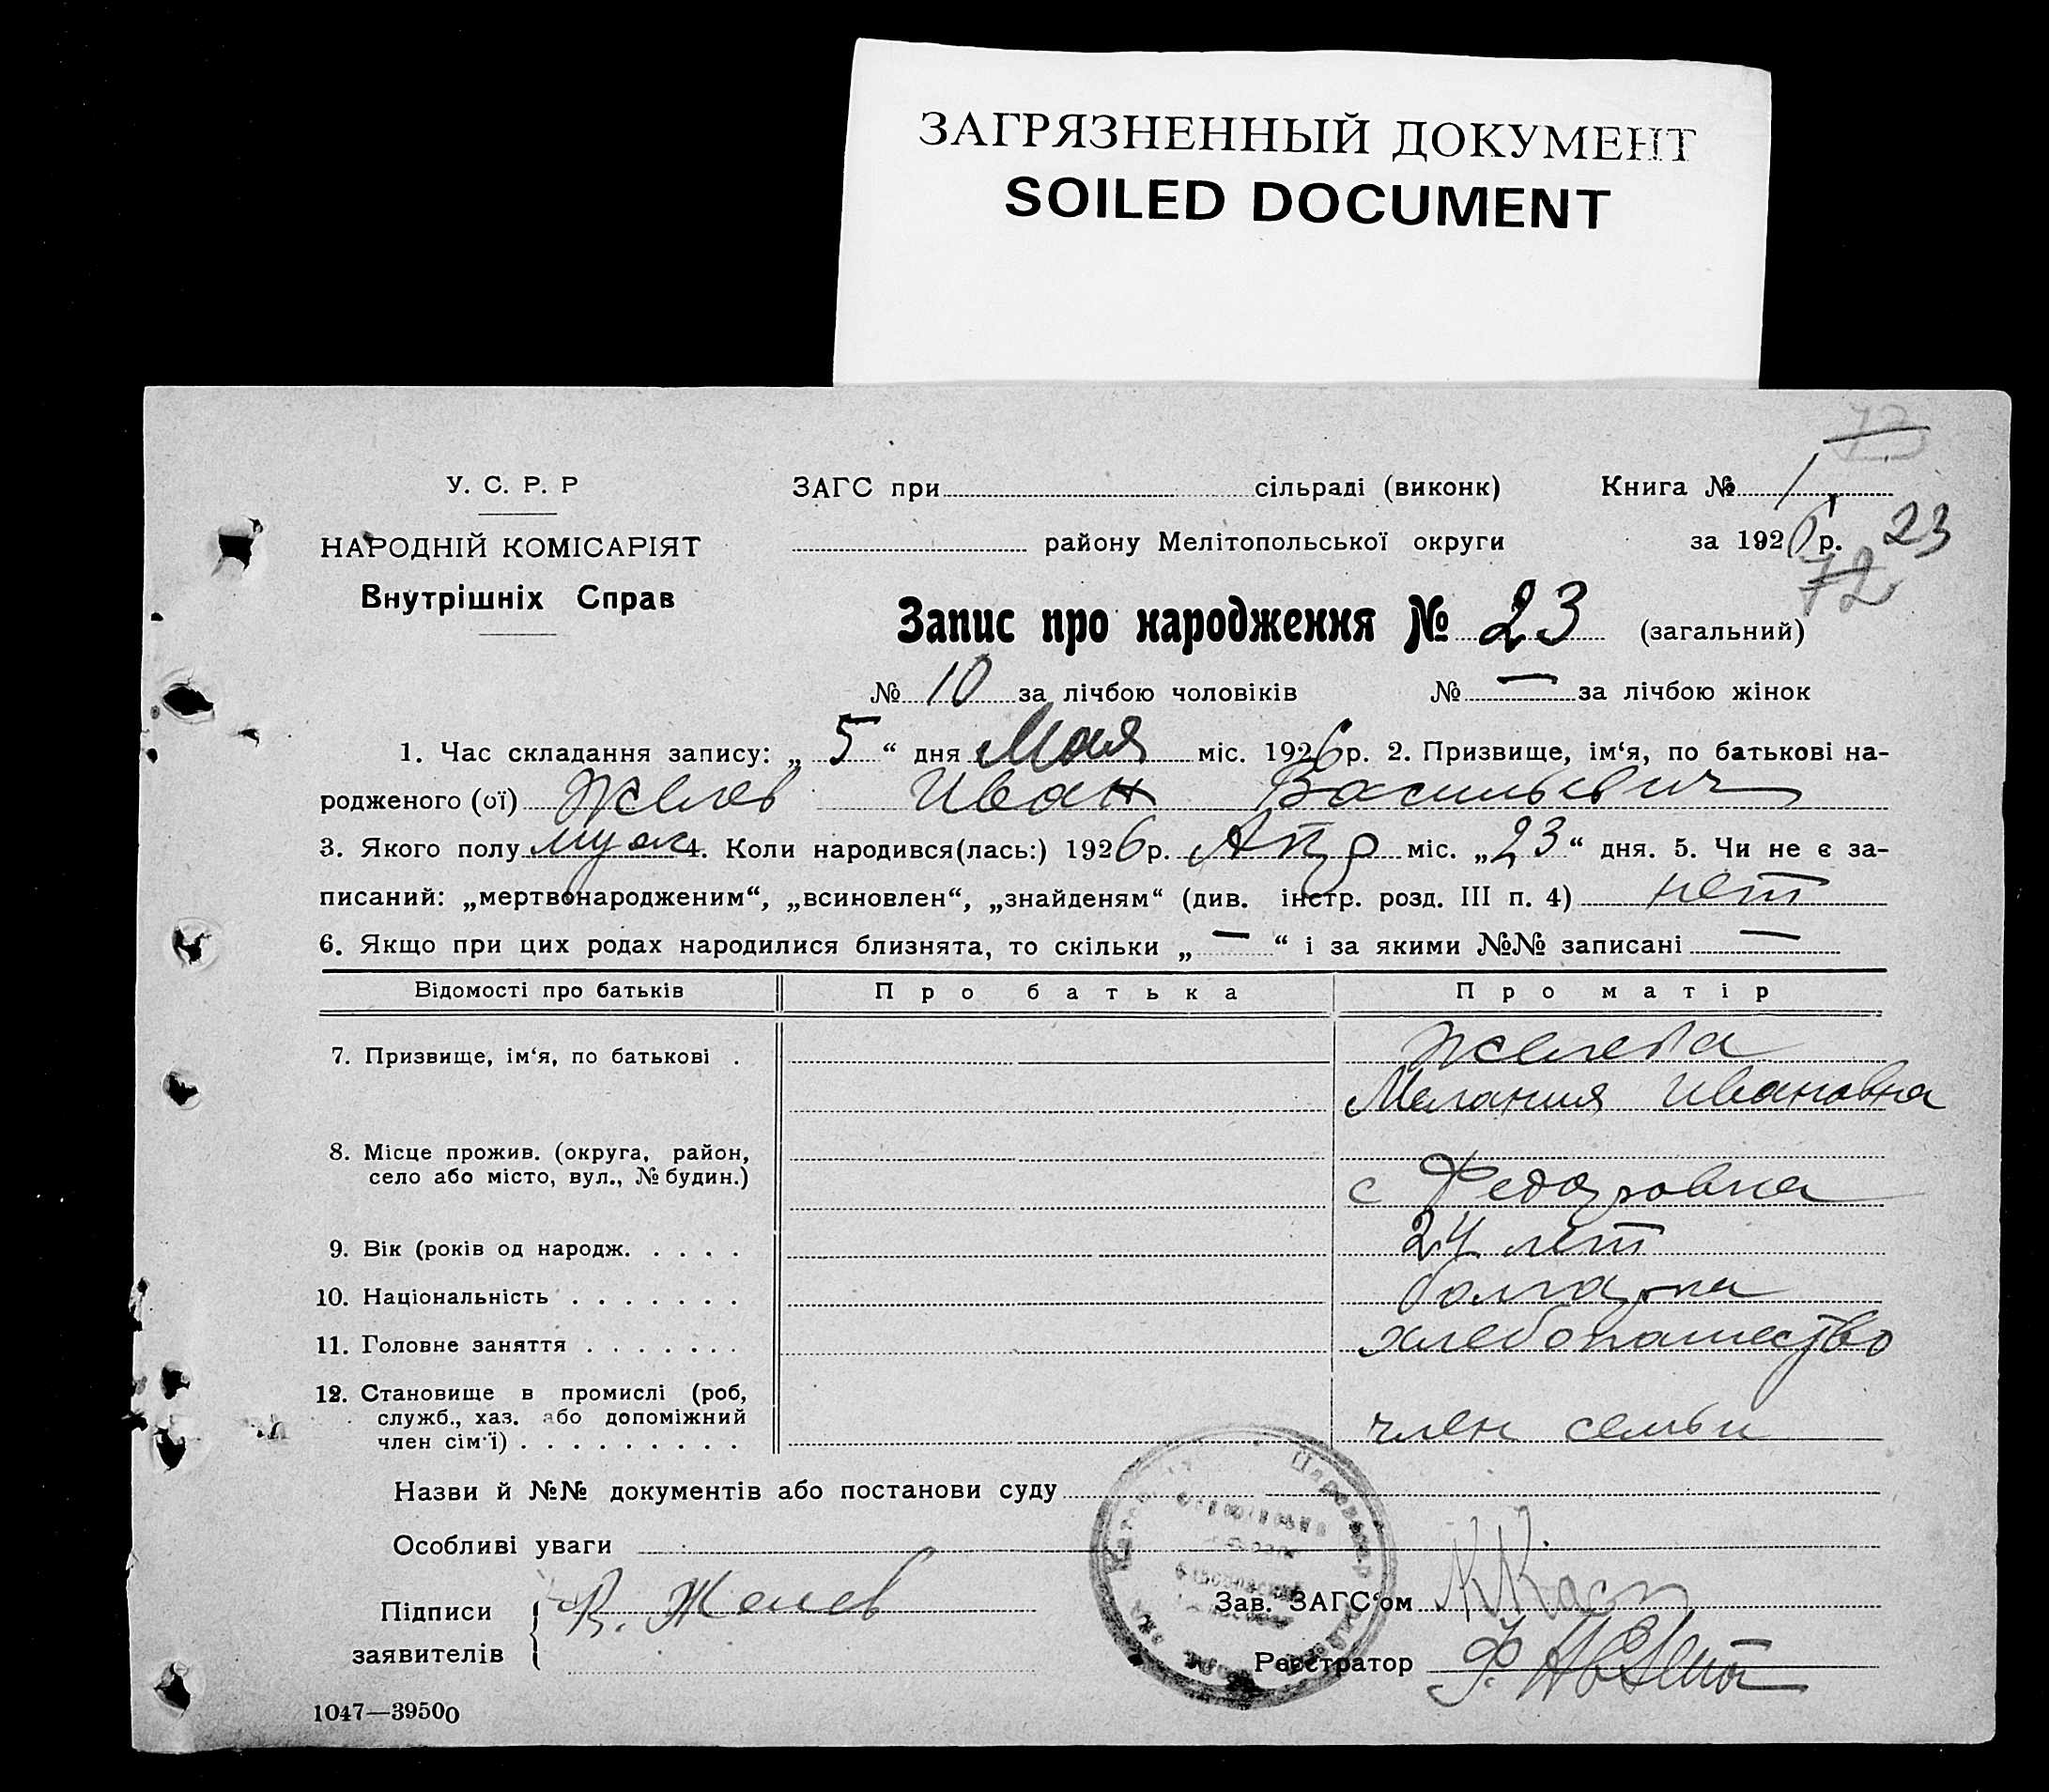 ЗАГРЯЗНЕННЫЙ ДОКУМЕНТ
SOILED DOCUMENT
У. С. Р. Р
НАРОДНІЙ КОМІСАРІЯТ
Внутрішніх Справ
ЗАГС при сільраді (виконк)
району Мелітопольської округи
Книга № 1
за 1926 р. 23
72
Запис про народження № 23 (загальний)
№ 10 за лічбою чоловіків № — за лічбою жінок
1. Час складання запису: „ 5 “ дня Мая міс. 1926 р. 2. Призвище, ім‘я, по батькові на-
родженого (ої) Желев Иван Васильевич
3. Якого полу муж 4. Коли народився(лась:) 1926 р. Апр міс. „23“ дня. 5. Чи не є за-
писаний: „мертвонародженим“, „всиновлен“, „знайденям“ (див. інстр. розд. III п. 4) нет
6. Якщо при цих родах народилися близнята, то скільки „ — “ і за якими №№ записані —
Відомості про батьків Про батька Про матір
7. Призвище, ім‘я, по батькові . Желева
Мелания Ивановна
8. Місце прожив. (округа, район,
село або місто, вул., № будин.) с Федоровка
9. Вік (років од народж. . . . . 24 лет
10. Національність . . . . . . . болгарка
11. Головне заняття . . . . . . . хлебопашество
12. Становище в промислі (роб,
служб., хаз. або допоміжний
член сім‘ї) . . . . . . . . . член семьи
Назви й №№ документів або постанови суду
Особливі уваги
Підписи
заявителів
В. Желев
Зав. ЗАГС‘ом
Реєстратор
1047—39500